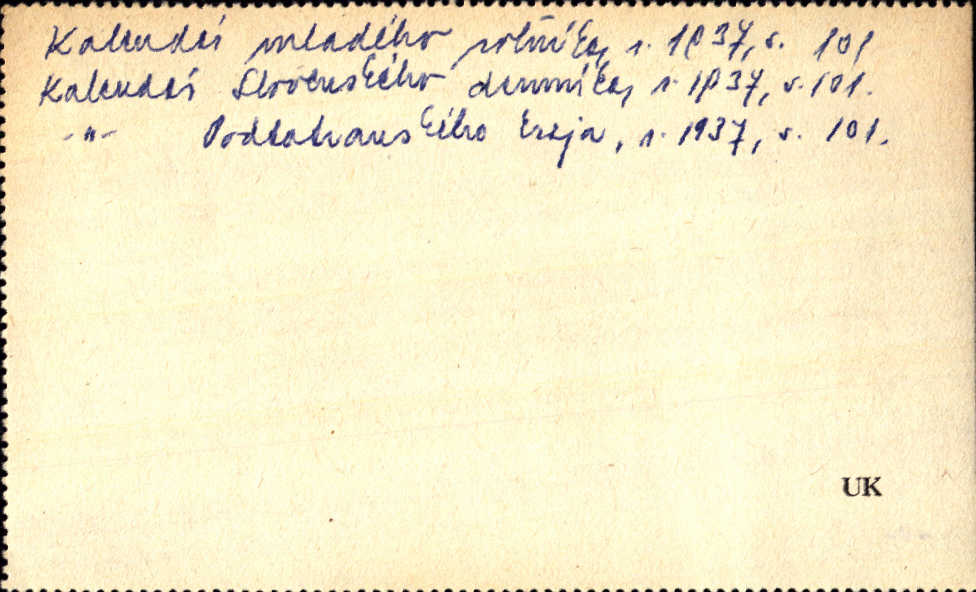 Kalendár mladého rolníka, r. 1937, s. 101
Kalendár Slovenského denníka, r. 1937, s. 101.
-"- Podtatranského kraja, r. 1937, s. 101.
UK